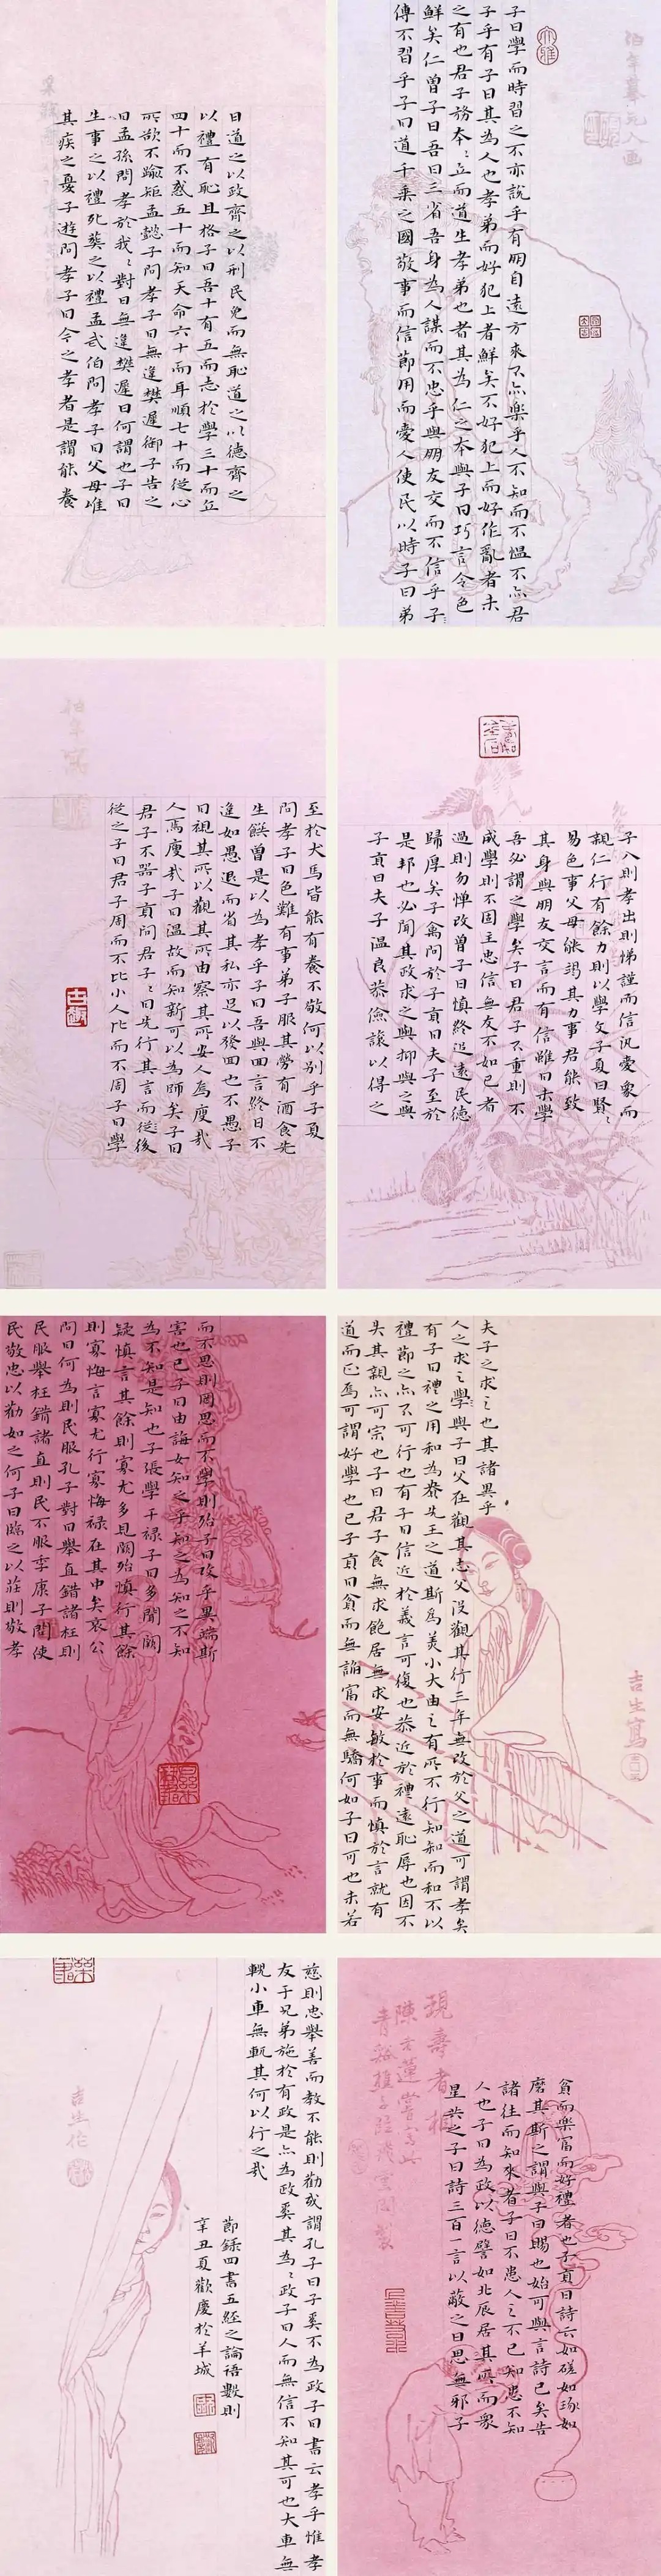 子曰學而時習之不亦說乎有朋自遠方來不亦樂乎人不知而不慍不亦君
子乎有子曰其為人也孝弟而好犯上者鮮矣不好犯上而好作亂者未
之有也君子務本〻立而道生孝弟也者其為仁之本與子曰巧言令色
鮮矣仁曾子曰吾日三省吾身為人謀而不忠乎與朋友交而不信乎
傳不習乎子曰道千乘之國敬事而信節用而愛人使民以時子曰弟
伯年摹元人画
子入則孝出則悌謹而信汎愛眾而
親仁行有餘力則以學文子夏曰賢〻
易色事父母能竭其力事君能致
其身與朋友交言而有信雖曰未學
吾必謂之學矣子曰君子不重則不
威學則不固主忠信無友不如己者
過則勿憚改曾子曰慎終追遠民德
歸厚矣子禽問於子貢曰夫子至於
是邦也必聞其政求之與抑與之與
子貢曰夫子溫良恭儉讓以得之
夫子之求之也其諸異乎
人之求之學與子曰父在觀其志父沒觀其行三年無改於父之道可謂孝矣
有子曰禮之用和為貴先王之道斯為美小大由之有所不行知知而和不以
禮節之亦不可行也有子曰信近於義言可復也恭近於禮遠恥辱也因不
失其親亦可宗也子曰君子食無求飽居無求安敏於事而慎於言就有
道而正焉可謂好學也已子貢曰貧而無諂富而無驕何如子曰可也未若
吉生寫
貧而樂富而好禮者也子貢曰詩云如磋如琢如
磨其斯之謂與子曰賜也始可與言詩已矣告
諸往而知來者子曰不患人之不己知患不知
人也子曰為政以德譬如北辰居其所而眾
星共之子曰詩三百一言以蔽之曰思無邪子
曰道之以政齊之以刑民免而無恥道之以德齊之
以禮有恥且格子曰吾十有五而志於學三十而立
四十而不惑五十而知天命六十而耳順七十而從心
所欲不踰矩孟懿子問孝子曰無違樊遲御子告之
曰孟孫問孝於我〻對曰無違樊遲曰何謂也子曰
生事之以禮死葬之以禮孟武伯問孝子曰父母唯
其疾之憂子游問孝子曰今之孝者是謂能養
至於犬馬皆能有養不敬何以別乎子夏
問孝子曰色難有事弟子服其勞有酒食先
生饌曾是以為孝乎子曰吾與回言終日不
違如愚退而省其私亦足以發回也不愚子
曰視其所以觀其所由察其所安人焉廋哉
人焉廋哉子曰溫故而知新可以為師矣子曰
君子不器子貢問君子〻曰先行其言而從後
從之子曰君子周而不比小人比而不周子曰學
而不思則罔思而不學則殆子曰攻乎異端斯
害也已子曰由誨女知之乎知之為知之不知
為不知是知也子張學干祿子曰多聞闕
疑慎言其餘則寡尤多見闕殆慎行其餘
則寡悔言寡尤行寡悔祿在其中矣哀公
問曰何為則民服孔子對曰舉直錯諸枉則
民服舉枉錯諸直則民不服季康子問使
民敬忠以勸如之何子曰臨之以莊則敬孝
慈則忠舉善而教不能則勸或謂孔子曰子奚不為政子曰書云孝乎惟孝
友于兄弟施於有政是亦為政奚其為〻政子曰人而無信不知其可也大車無
輗小車無軏其何以行之哉
節錄四書五經之論語數則
辛丑夏歡慶於羊城
吉生作